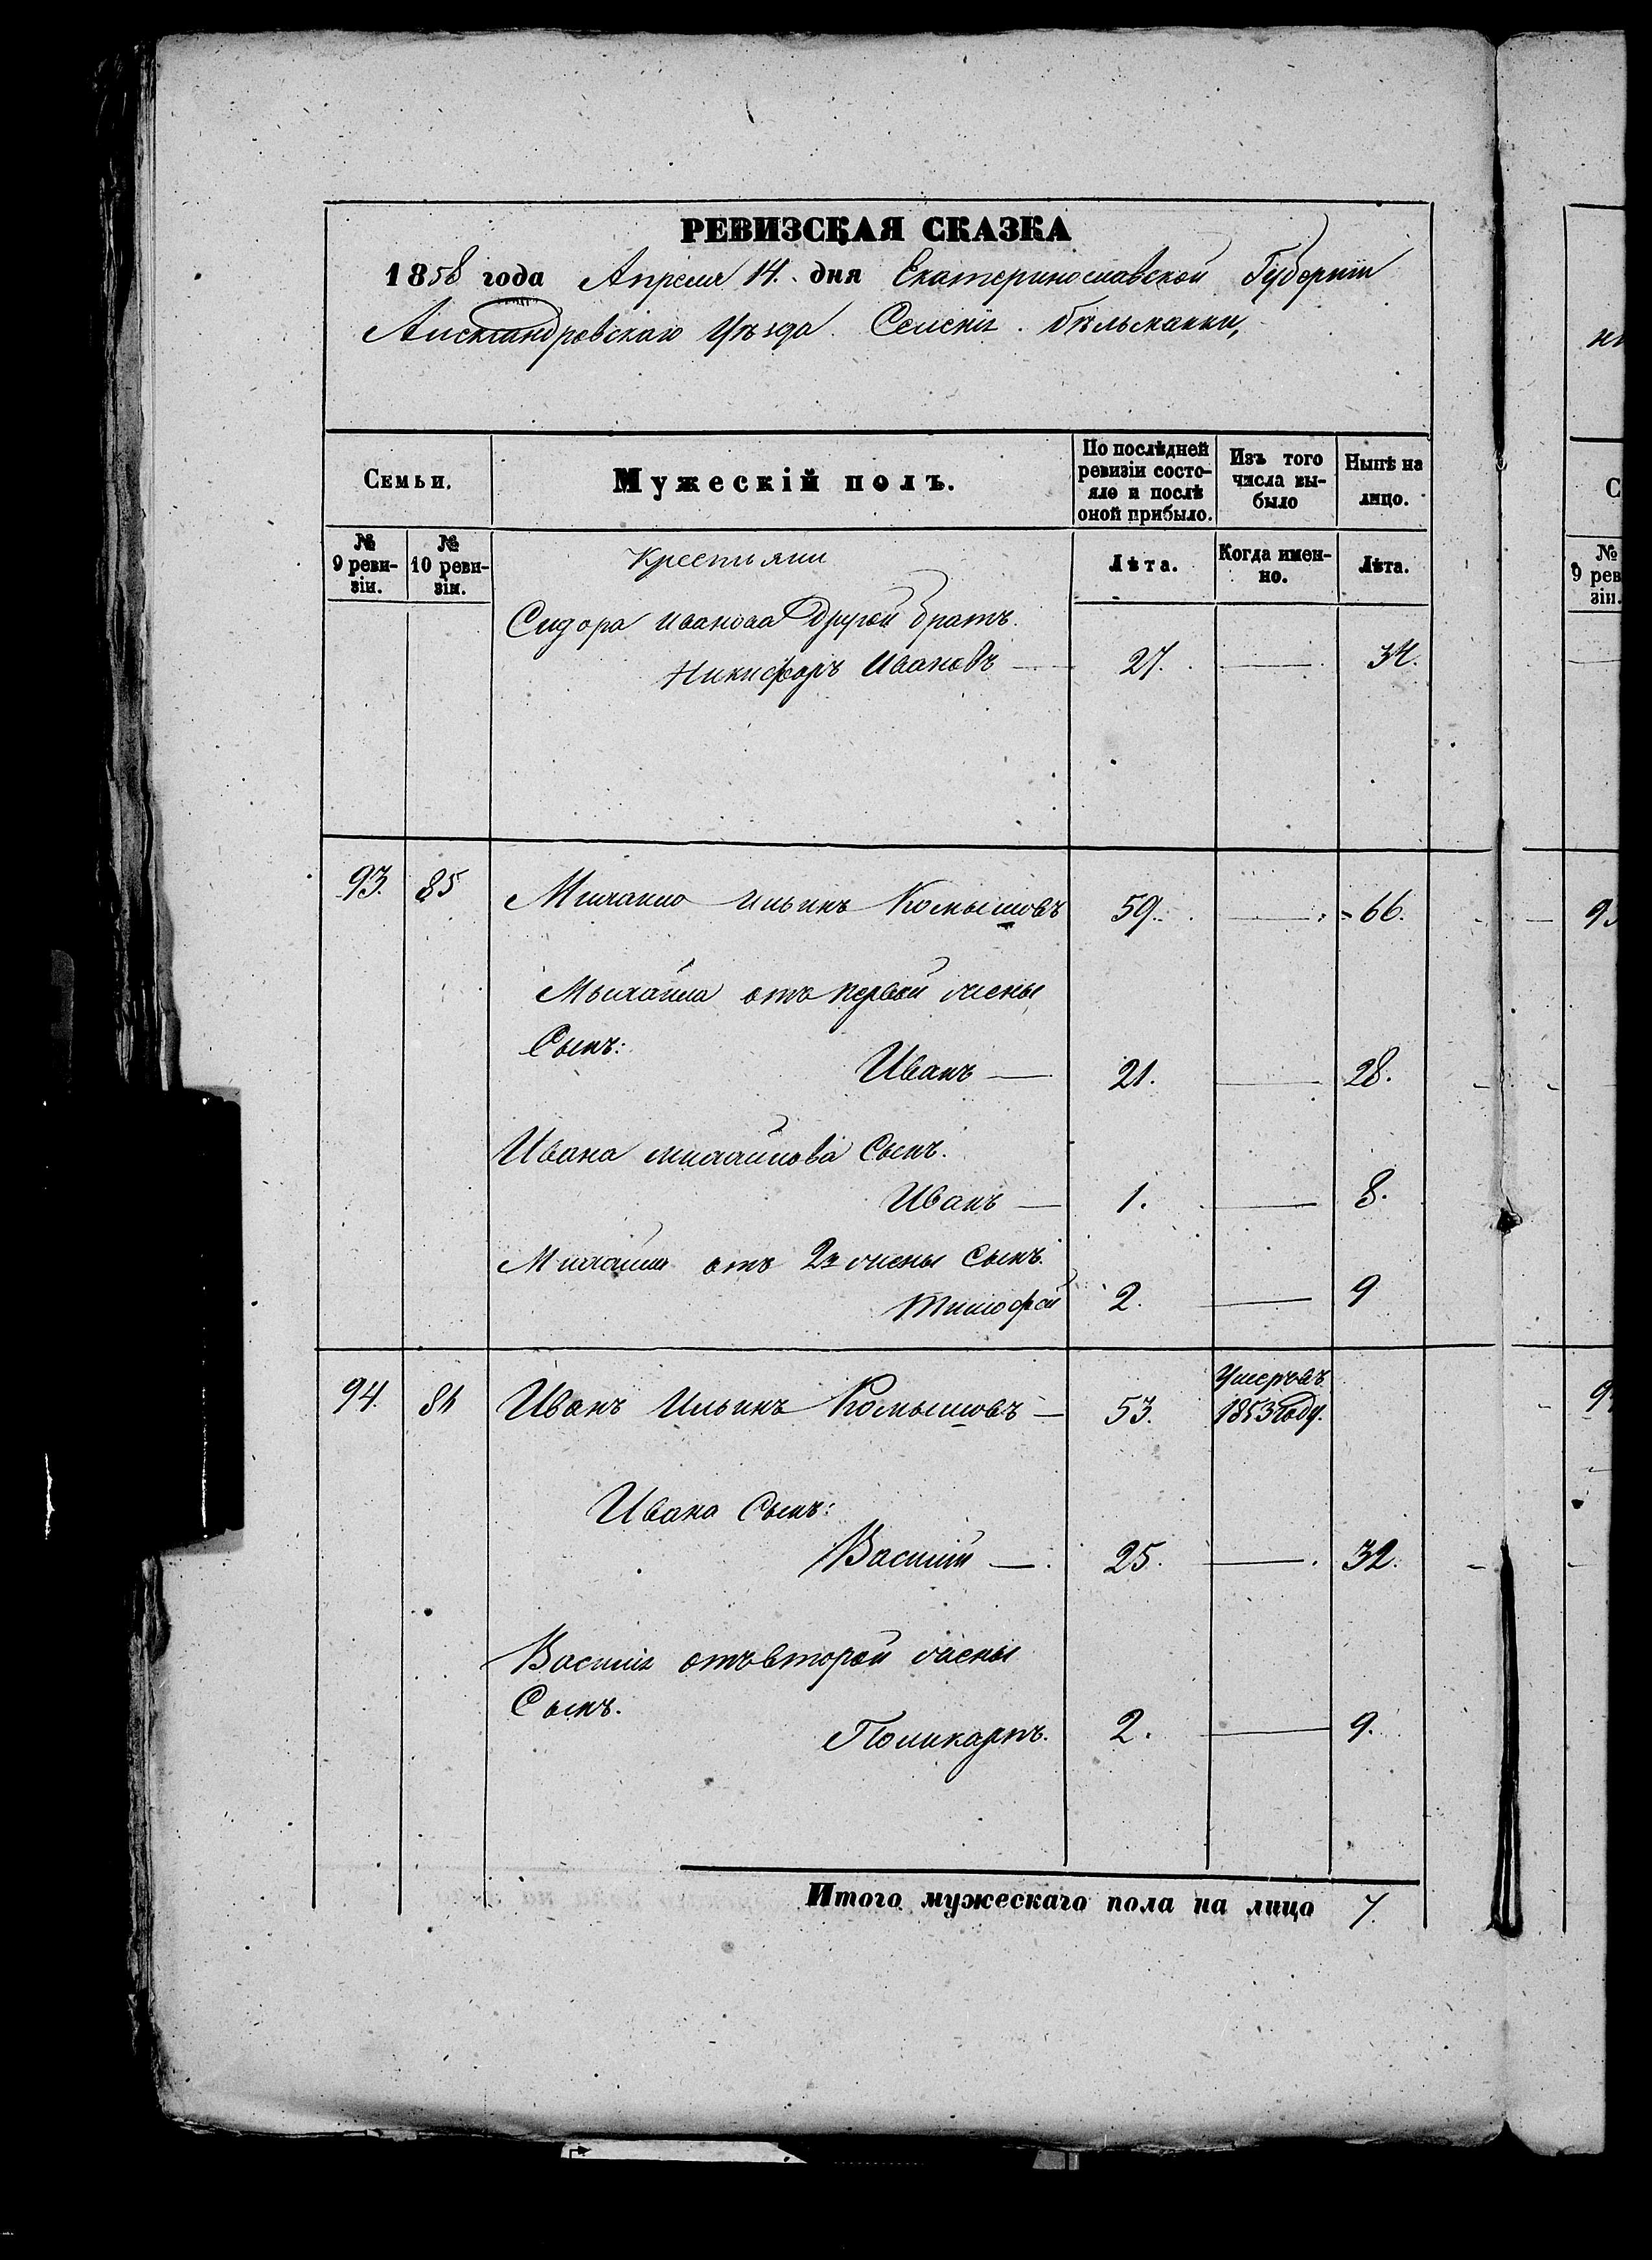 РЕВИЗСКАЯ СКАЗКА
1858 года Апреля 14. дня Екатеринославской Губернiи
Александровскаго Уѣзда. Селенiя. бѣльманки,
Семьи.
Мужескій полъ.
По послѣдней ревизіи состояло и послѣ оной прибыло.
Изъ того числа выбыло
Нынѣ на лицо.
№ 9 ревизіи.
№ 10 ревизіи.
Крестьяни
Лѣта.
Когда именно.
Лѣта.
Сидора иванова другой братъ.
Никифоръ Ивановъ — 27. — 34.
93. 85 Михаило ильинъ Комышовъ 59. — 66.
Михайла отъ первой жены
Сынъ:
Иванъ — 21. — 28.
Ивана михайлова Сынъ.
Иванъ — 1. — 8.
Михайла отъ 2й жены Сынъ.
Тимофей 2. — 9
94. 86 Иванъ Ильинъ Комышовъ — 53. Умеръ въ 1853 году.
Ивана Сынъ:
Василiй — 25. — 32.
Василiя отъ второй жены
Сынъ.
Поликарпъ. 2. — 9.
Итого мужескаго пола на лицо 7.
С
№
9 рев
зіи.